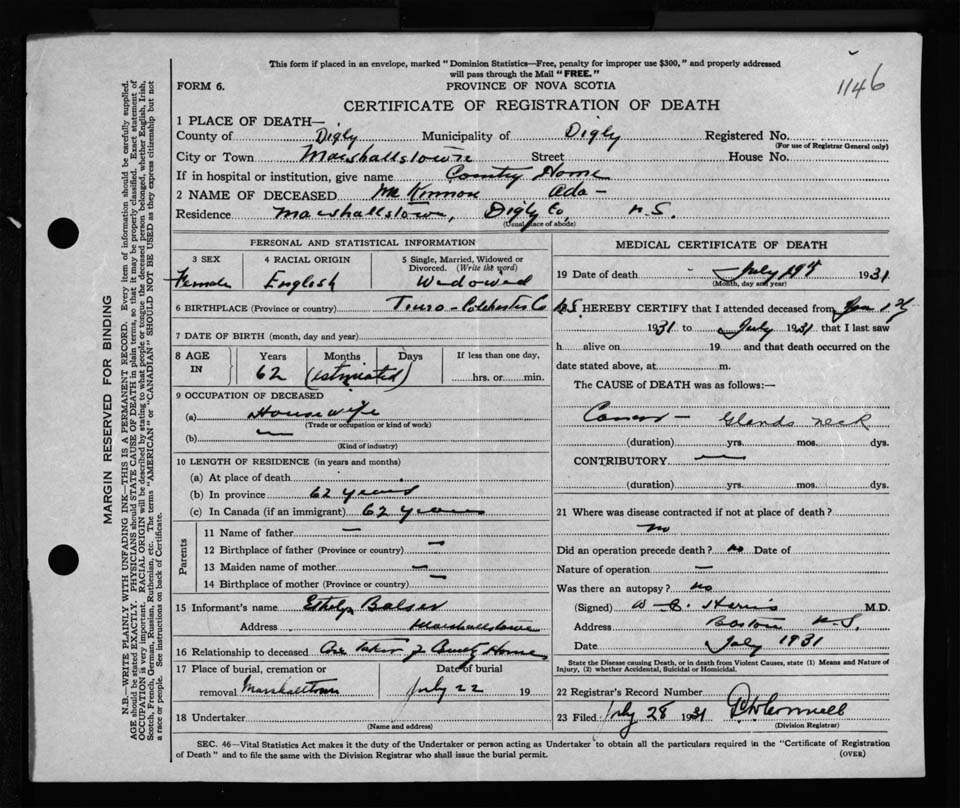 This form if placed in an envelope, marked "Dominion Statistics—Free, penalty for improper use $300," and properly addressed
will pass through the Mail "FREE."
1146
FORM 6.
PROVINCE OF NOVA SCOTIA
CERTIFICATE OF REGISTRATION OF DEATH
1 PLACE OF DEATH—
County of Digby Municipality of Digby Registered No.
(For use of Registrar General only)
City or Town Marshallstowne Street House No.
If in hospital or institution, give name County Home
2 NAME OF DECEASED McKinnon Ada -
Residence Marshallstowne, Digby Co, N.S.
(Usual place of abode)
PERSONAL AND STATISTICAL INFORMATION
3 SEX 4 RACIAL ORIGIN 5 Single, Married, Widowed or Divorced. (Write the word)
Female English Widowed
6 BIRTHPLACE (Province or country) Truro - Colchester Co N.S.
7 DATE OF BIRTH (month, day and year)
8 AGE IN Years Months Days If less than one day,
62 (estimated) hrs. or min.
9 OCCUPATION OF DECEASED
(a) Housewife
(Trade or occupation or kind of work)
(b) —
(Kind of industry)
10 LENGTH OF RESIDENCE (in years and months)
(a) At place of death
(b) In province 62 years
(c) In Canada (if an immigrant) 62 years
Parents
11 Name of father —
12 Birthplace of father (Province or country) —
13 Maiden name of mother —
14 Birthplace of mother (Province or country) —
15 Informant's name Balser
Address Marshallstowne
16 Relationship to deceased Care Taker of County Home
17 Place of burial, cremation or Date of burial
removal Marshalltown July 22 19
18 Undertaker
(Name and address)
MEDICAL CERTIFICATE OF DEATH
19 Date of death July 1931
(Month, day and year)
I HEREBY CERTIFY that I attended deceased from Jan
1931 to July 1931 that I last saw
h alive on 19 and that death occurred on the
date stated above, at m.
The CAUSE of DEATH was as follows:—
Cancer - Glands neck
(duration) yrs. mos. dys.
CONTRIBUTORY —
(duration) yrs. mos. dys.
21 Where was disease contracted if not at place of death?
no
Did an operation precede death? no Date of
Nature of operation —
Was there an autopsy? no
(Signed) M.D.
Address N.S.
Date July 1931
State the Disease causing Death, or in death from Violent Causes, state (1) Means and Nature of
Injury, (2) whether Accidental, Suicidal or Homicidal.
22 Registrar's Record Number
23 Filed July 28 1931
(Division Registrar)
SEC. 46—Vital Statistics Act makes it the duty of the Undertaker or person acting as Undertaker to obtain all the particulars required in the "Certificate of Registration
of Death" and to file the same with the Division Registrar who shall issue the burial permit.
(OVER)
MARGIN RESERVED FOR BINDING
N.B.—WRITE PLAINLY WITH UNFADING INK—THIS IS A PERMANENT RECORD. Every item of information should be carefully supplied.
AGE should be stated EXACTLY. PHYSICIANS should STATE CAUSE OF DEATH in plain terms, so that it may be properly classified. Exact statement of
OCCUPATION is very important. RACIAL ORIGIN will be described by stating to what people or tongue the deceased person belonged, whether English, Irish,
Scotch, French, German, Russian, Ruthenian, etc. The terms "AMERICAN" or "CANADIAN" SHOULD NOT BE USED as they express citizenship but not
a race or people. See instructions on back of Certificate.